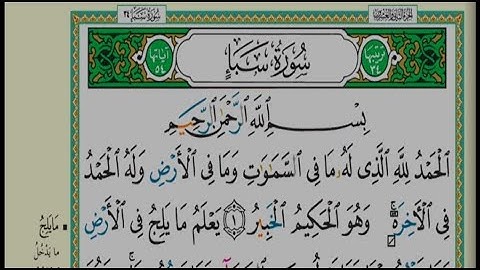 سُورَةُ سَبَإٍ
ترتيبها ٣٤
آياتها ٥٤
بِسْمِ اللَّهِ الرَّحْمَٰنِ الرَّحِيمِ
الْحَمْدُ لِلَّهِ الَّذِي لَهُ مَا فِي السَّمَٰوَٰتِ وَمَا فِي الْأَرْضِ وَلَهُ الْحَمْدُ
فِي الْأَخِرَةِ وَهُوَ الْحَكِيمُ الْخَبِيرُ ١ يَعْلَمُ مَا يَلِجُ فِي الْأَرْضِ
مَا يَلِجُ
مَا يَدْخُلُ